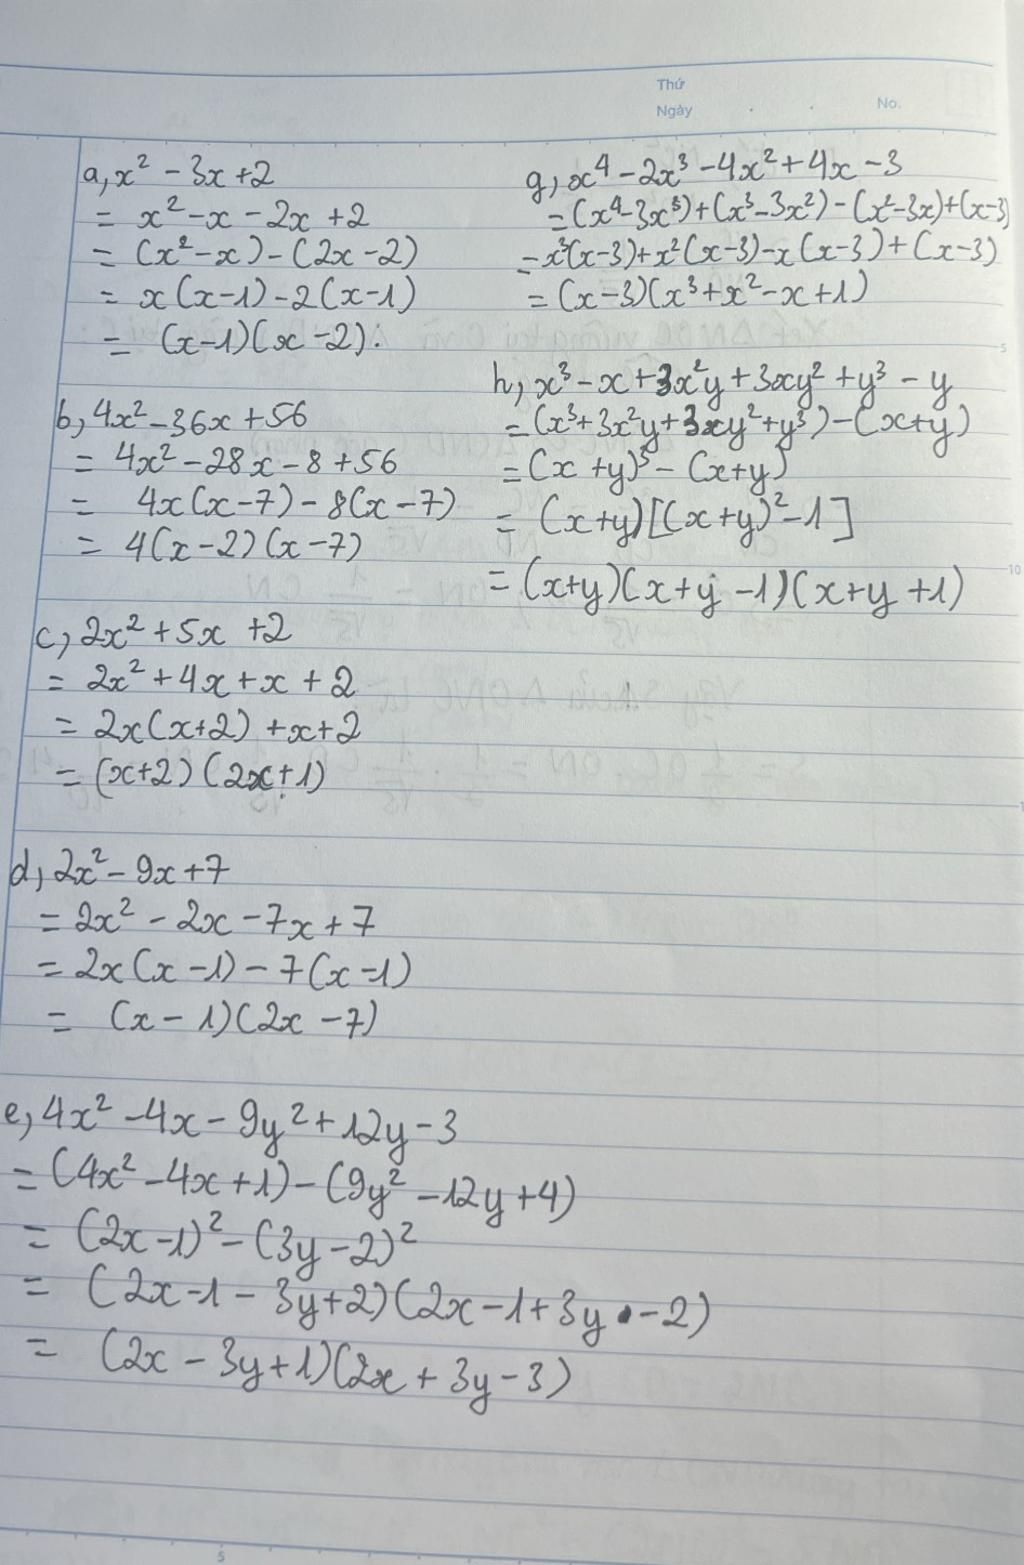 Thứ
Ngày
No.
a, x² - 3x + 2
= x² - x - 2x + 2
= (x² - x) - (2x - 2)
= x(x-1) - 2(x-1)
= (x-1)(x-2).
b, 4x² - 36x + 56
= 4x² - 28x - 8 + 56
= 4x(x-7) - 8(x-7)
= 4(x-2)(x-7)
c, 2x² + 5x + 2
= 2x² + 4x + x + 2
= 2x(x+2) + x+2
= (x+2)(2x+1)
d, 2x² - 9x + 7
= 2x² - 2x - 7x + 7
= 2x(x-1) - 7(x-1)
= (x-1)(2x-7)
e, 4x² - 4x - 9y² + 12y - 3
= (4x² - 4x + 1) - (9y² - 12y + 4)
= (2x-1)² - (3y-2)²
= (2x-1-3y+2)(2x-1+3y-2)
= (2x-3y+1)(2x+3y-3)
g, x⁴ - 2x³ - 4x² + 4x - 3
= (x⁴-3x³)+(x³-3x²)-(x²-3x)+(x-3)
= x³(x-3)+x²(x-3)-x(x-3)+(x-3)
= (x-3)(x³+x²-x+1)
h, x³ - x + 3x²y + 3xy² + y³ - y
= (x³+3x²y+3xy²+y³)-(x+y)
= (x+y)³ - (x+y)
= (x+y)[(x+y)²-1]
= (x+y)(x+y-1)(x+y+1)
5
10
5